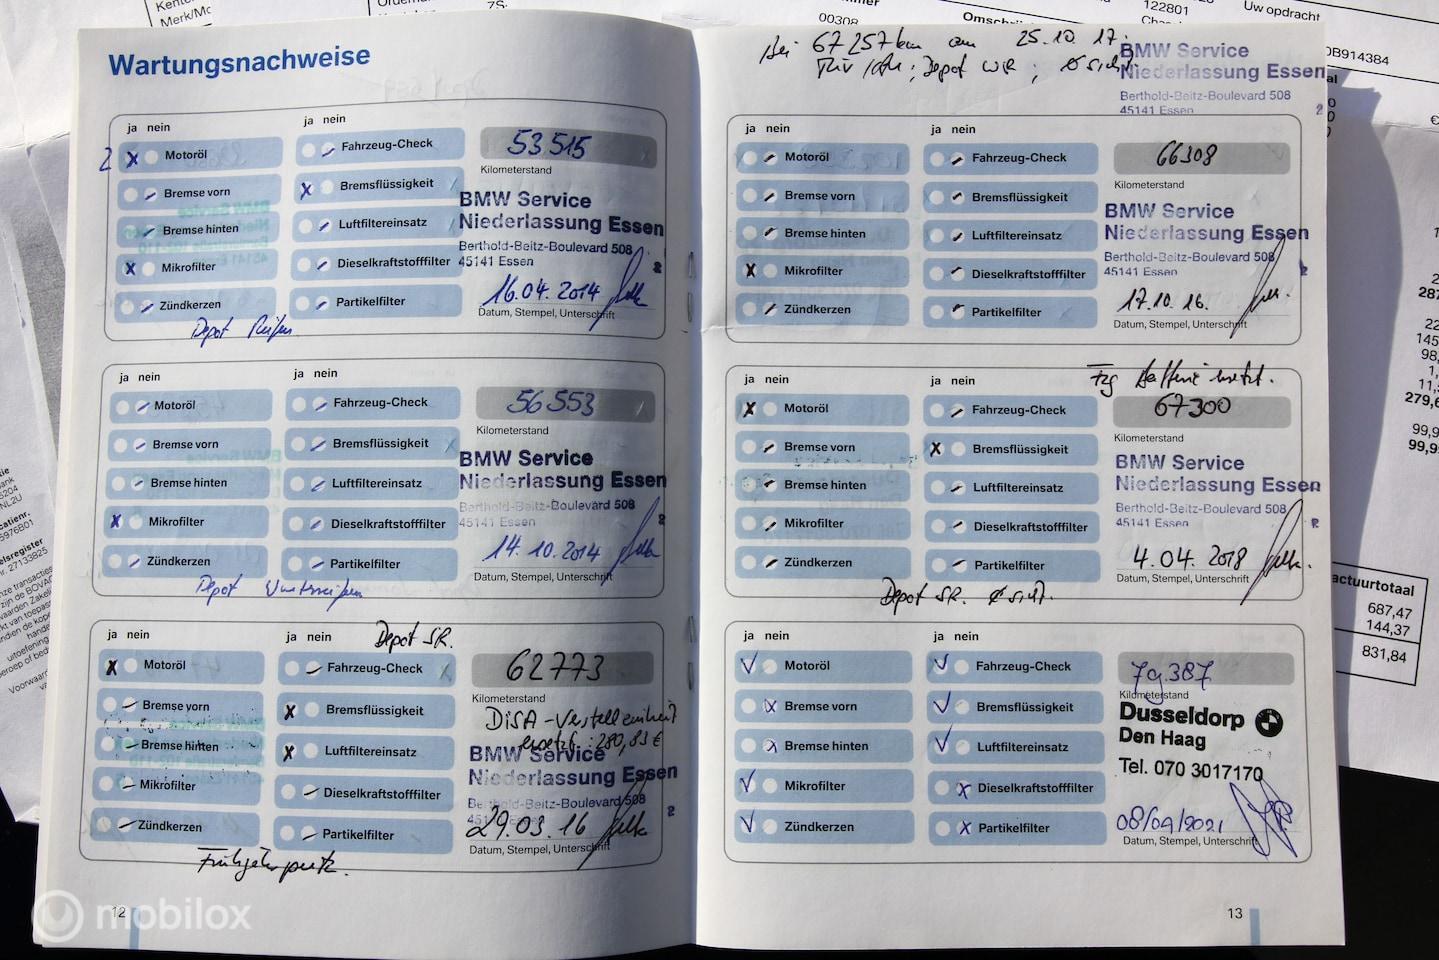 122801
Uw opdracht
00308
0B914384
Wartungsnachweise
ja nein
ja nein
Motoröl
Fahrzeug-Check
53515
Kilometerstand
Bremse vorn
Bremsflüssigkeit
BMW Service
Niederlassung Essen
Bremse hinten
Luftfiltereinsatz
Berthold-Beitz-Boulevard 508
45141 Essen
Mikrofilter
Dieselkraftstofffilter
16.04.2014
Zündkerzen
Partikelfilter
Datum, Stempel, Unterschrift
Depot Reifen
ja nein
ja nein
Motoröl
Fahrzeug-Check
56553
Kilometerstand
Bremse vorn
Bremsflüssigkeit
BMW Service
Niederlassung Essen
Bremse hinten
Luftfiltereinsatz
Berthold-Beitz-Boulevard 508
45141 Essen
Mikrofilter
Dieselkraftstofffilter
14.10.2014
Zündkerzen
Partikelfilter
Datum, Stempel, Unterschrift
Depot Winterreifen
ja nein
ja nein
Depot SR.
Motoröl
Fahrzeug-Check
62773
Kilometerstand
Bremse vorn
Bremsflüssigkeit
DISA-Verstelleinheit
ersetzt: 280,83 €
Bremse hinten
Luftfiltereinsatz
BMW Service
Niederlassung Essen
Mikrofilter
Dieselkraftstofffilter
Berthold-Beitz-Boulevard 508
45141 Essen
29.03.16
Zündkerzen
Partikelfilter
Datum, Stempel, Unterschrift
12
Bei 67257km am 25.10.17.
Depot WR;
BMW Service
Niederlassung Essen
Berthold-Beitz-Boulevard 508
45141 Essen
ja nein
ja nein
Motoröl
Fahrzeug-Check
66308
Kilometerstand
Bremse vorn
Bremsflüssigkeit
BMW Service
Niederlassung Essen
Bremse hinten
Luftfiltereinsatz
Berthold-Beitz-Boulevard 508
45141 Essen
Mikrofilter
Dieselkraftstofffilter
17.10.16.
Zündkerzen
Partikelfilter
Datum, Stempel, Unterschrift
Fzg Batterie ersetzt.
ja nein
ja nein
Motoröl
Fahrzeug-Check
67300
Kilometerstand
Bremse vorn
Bremsflüssigkeit
BMW Service
Niederlassung Essen
Bremse hinten
Luftfiltereinsatz
Berthold-Beitz-Boulevard 508
45141 Essen
Mikrofilter
Dieselkraftstofffilter
4.04.2018
Zündkerzen
Partikelfilter
Datum, Stempel, Unterschrift
Depot SR.
ja nein
ja nein
Motoröl
Fahrzeug-Check
79.387
Kilometerstand
Bremse vorn
Bremsflüssigkeit
Dusseldorp
Den Haag
Bremse hinten
Luftfiltereinsatz
Tel. 070 3017170
Mikrofilter
Dieselkraftstofffilter
08/09/2021
Zündkerzen
Partikelfilter
Datum, Stempel, Unterschrift
13
actuurtotaal
687,47
144,37
831,84
mobilox